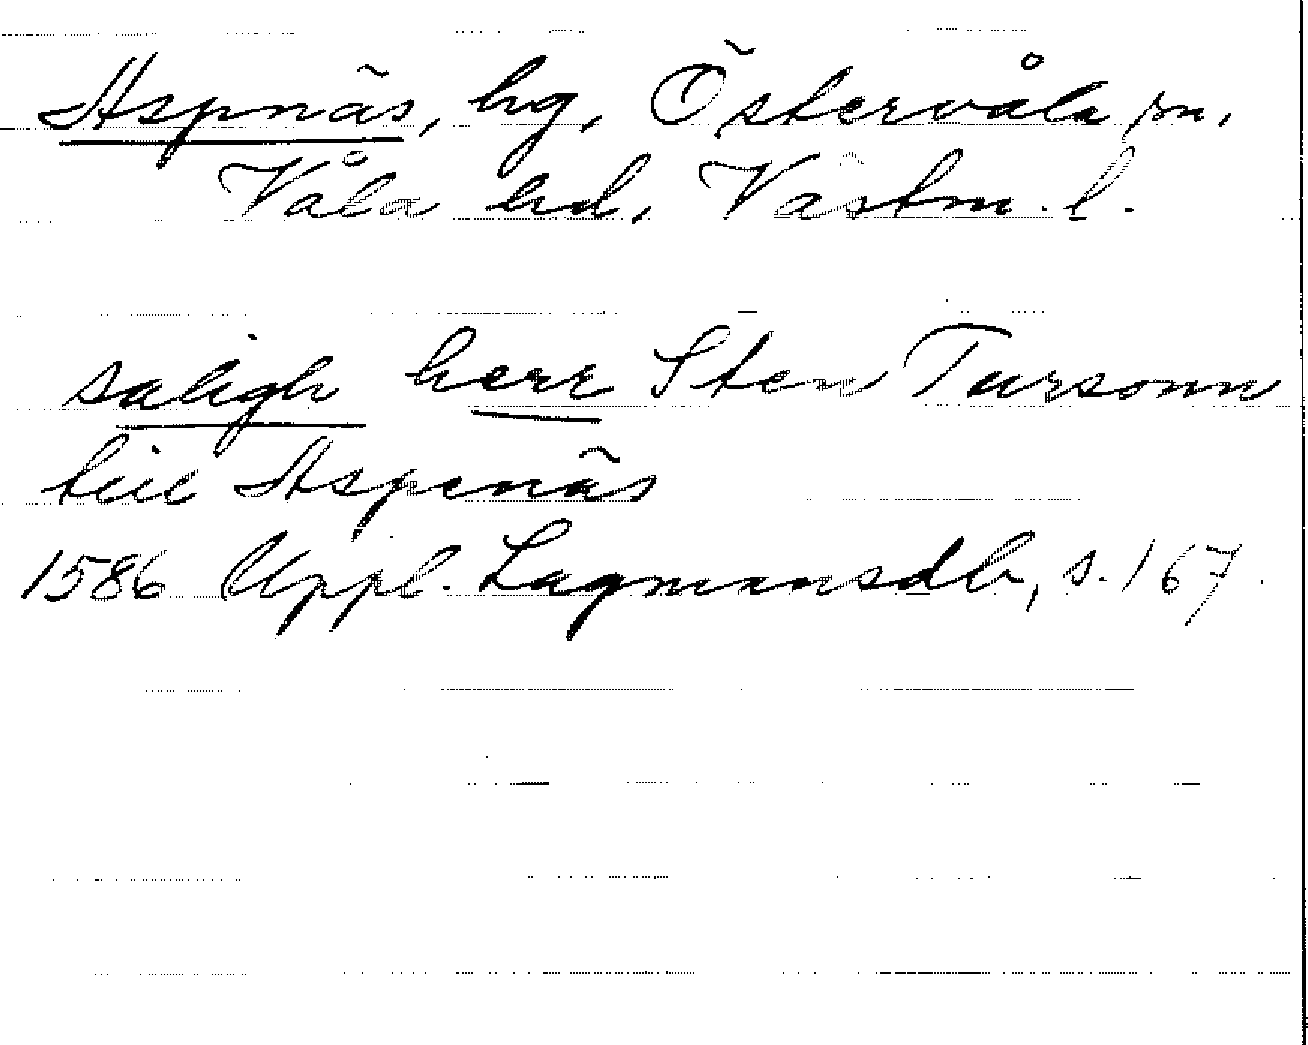 Aspnäs, hg, Östervåla sn,
Våla hd, Västm. l.
saligh herr Sten Tursonn
till Aspenäs
1586 Uppl. Lagmansdb, s. 167.